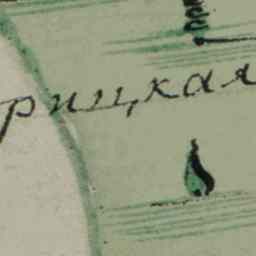 рицкая